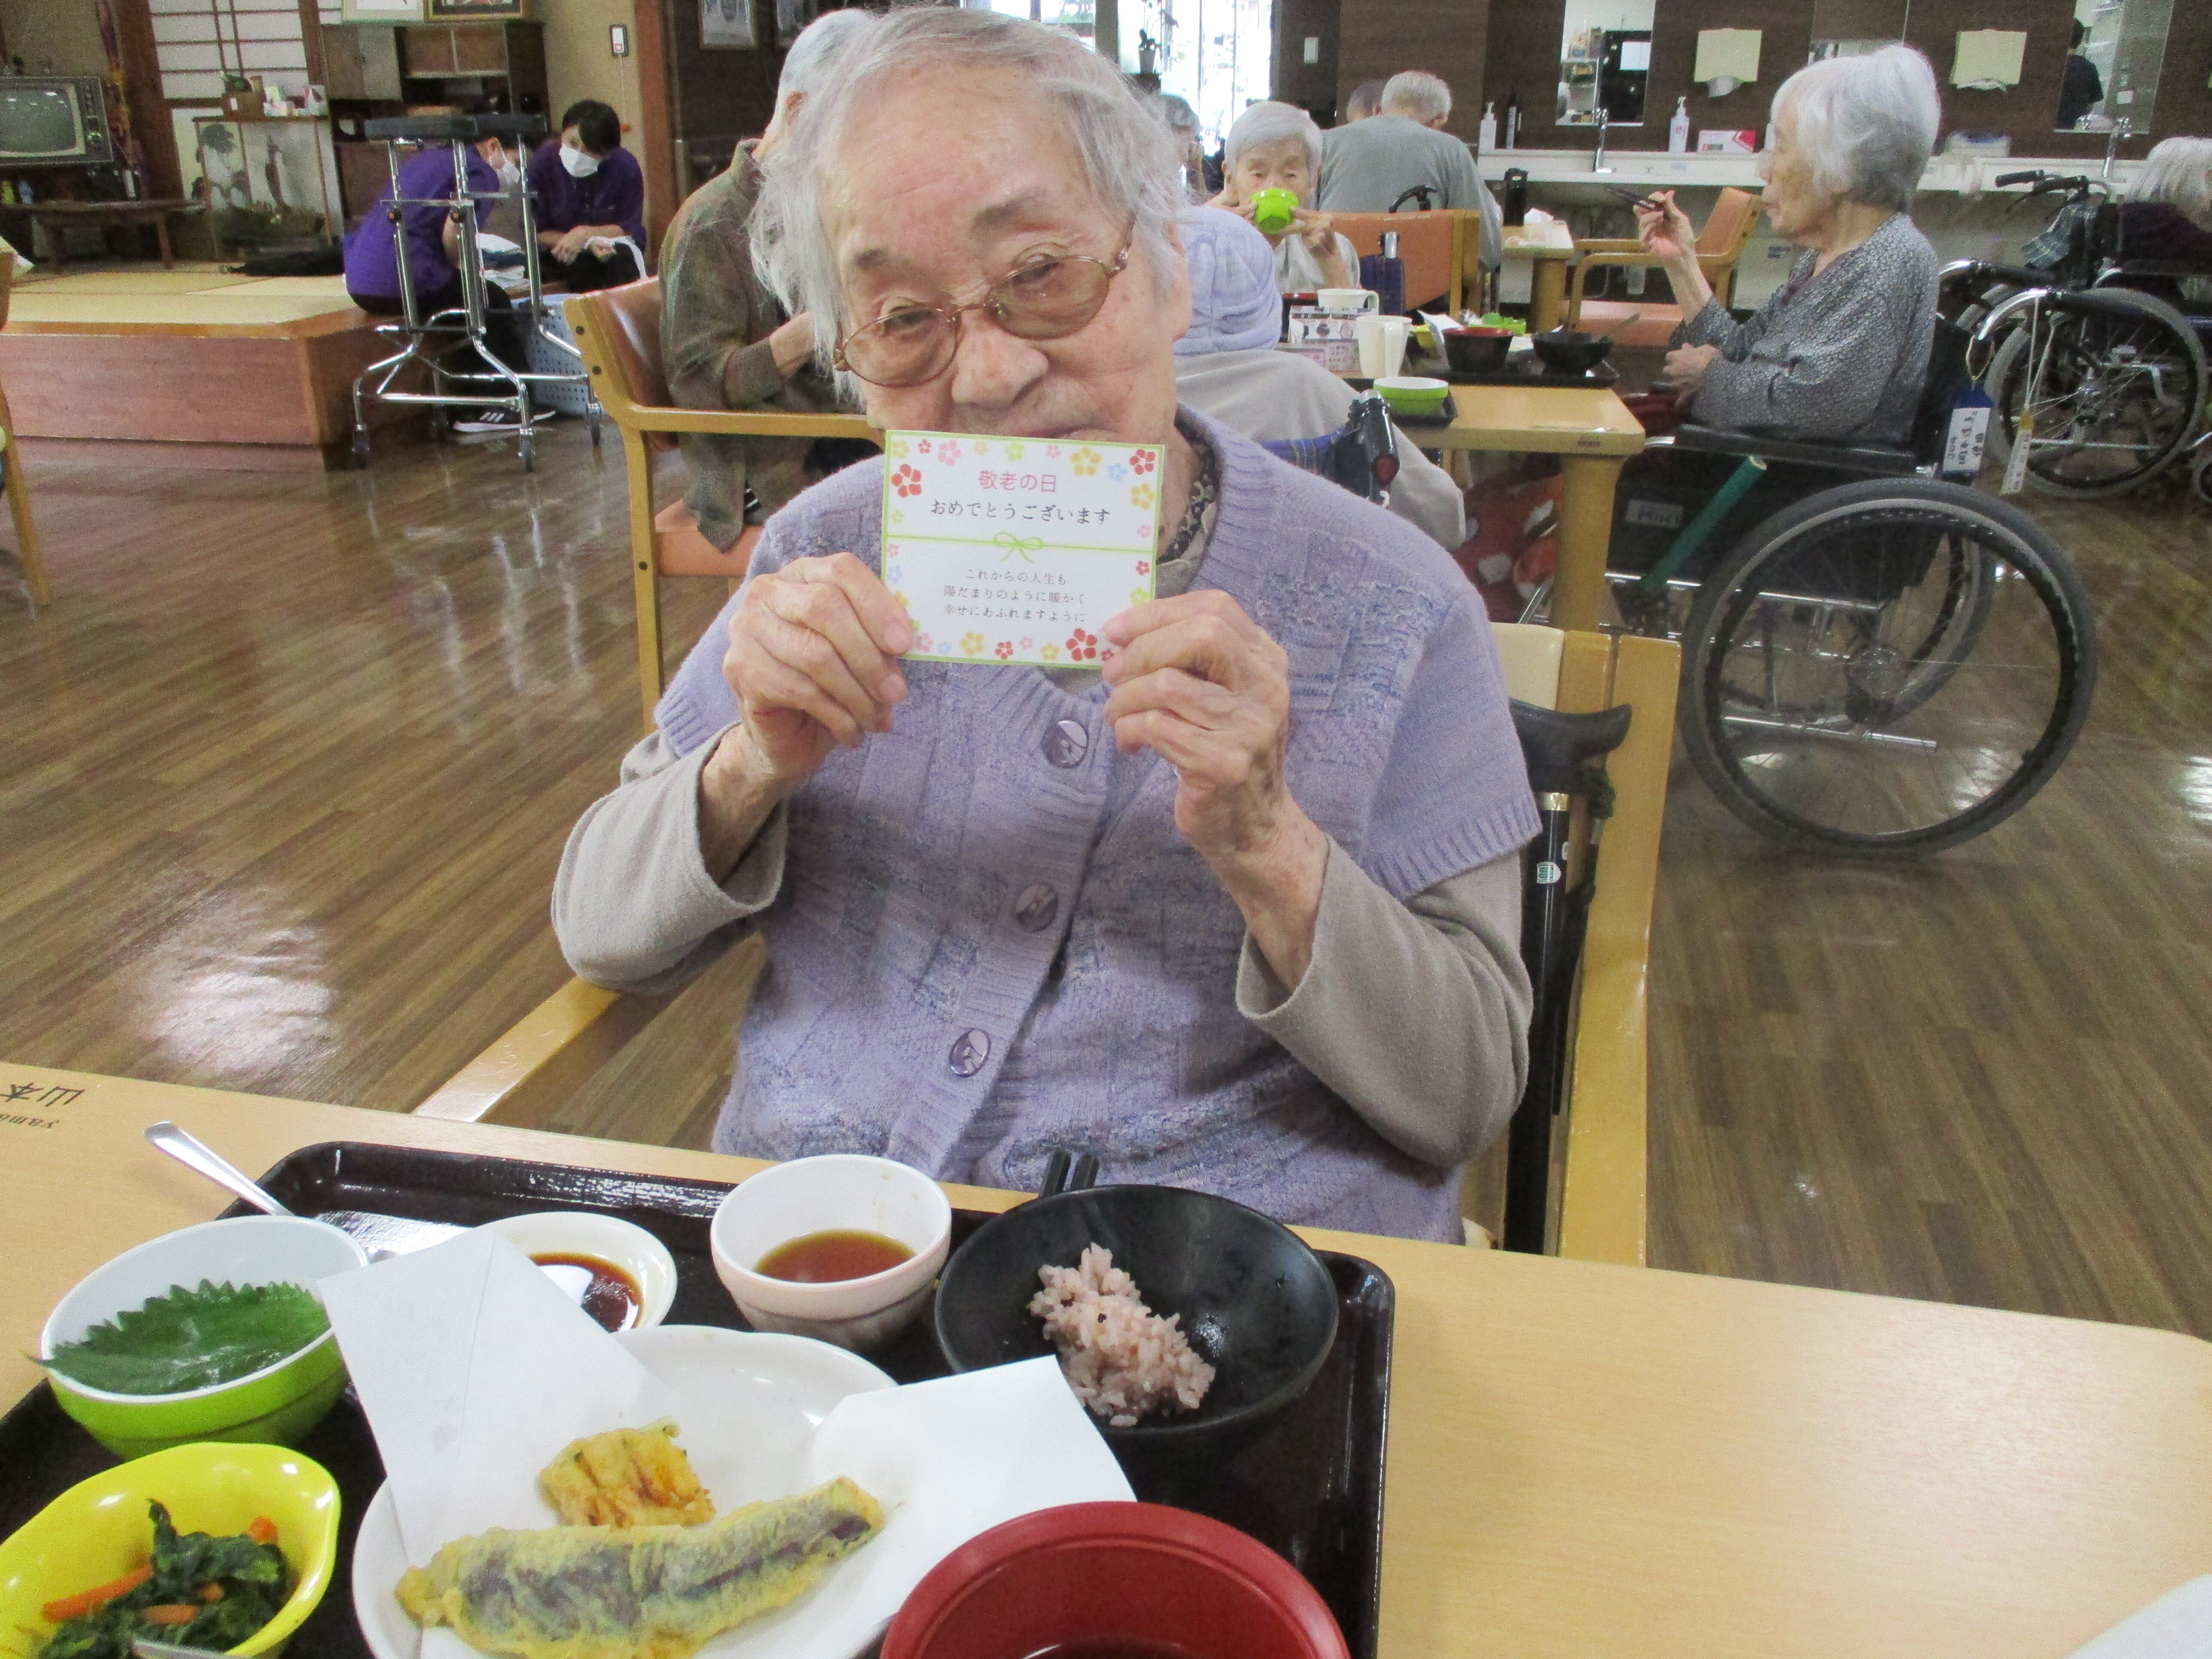 敬老の日
おめでとうございます
これからの人生も
陽だまりのように暖かく
幸せにあふれますように
山本
MiKi